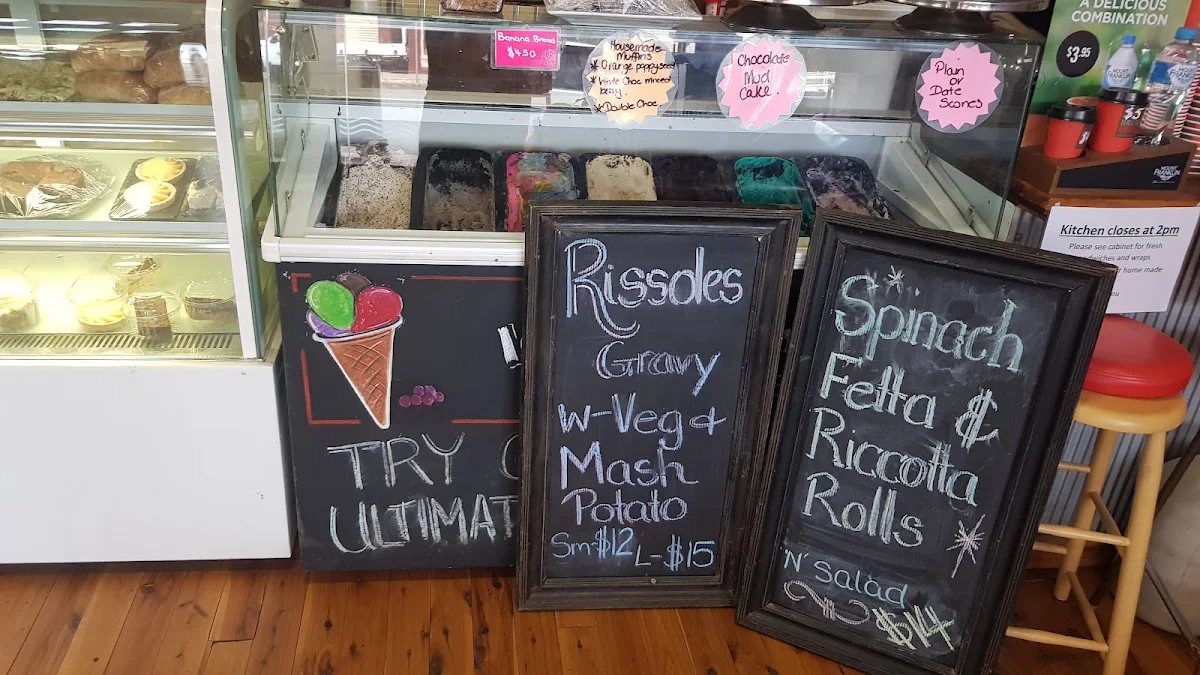 A DELICIOUS
COMBINATION
$3.95
Banana Bread
$4.50
Housemade
Muffins
* Orange poppyseed
* White Choc mixed
berry.
* Double Choc
Chocolate
Mud
Cake.
Plain
or
Date
Scones
MOUNT
FRANKLIN
Kitchen closes at 2pm
Please see cabinet for fresh
sandwiches and wraps
home made
TRY
ULTIMAT
Rissoles
Gravy
w-Veg &
Mash
Potato
Sm-$12 L-$15
Spinach
Fetta &
Riccotta
Rolls
'N' Salad
$14